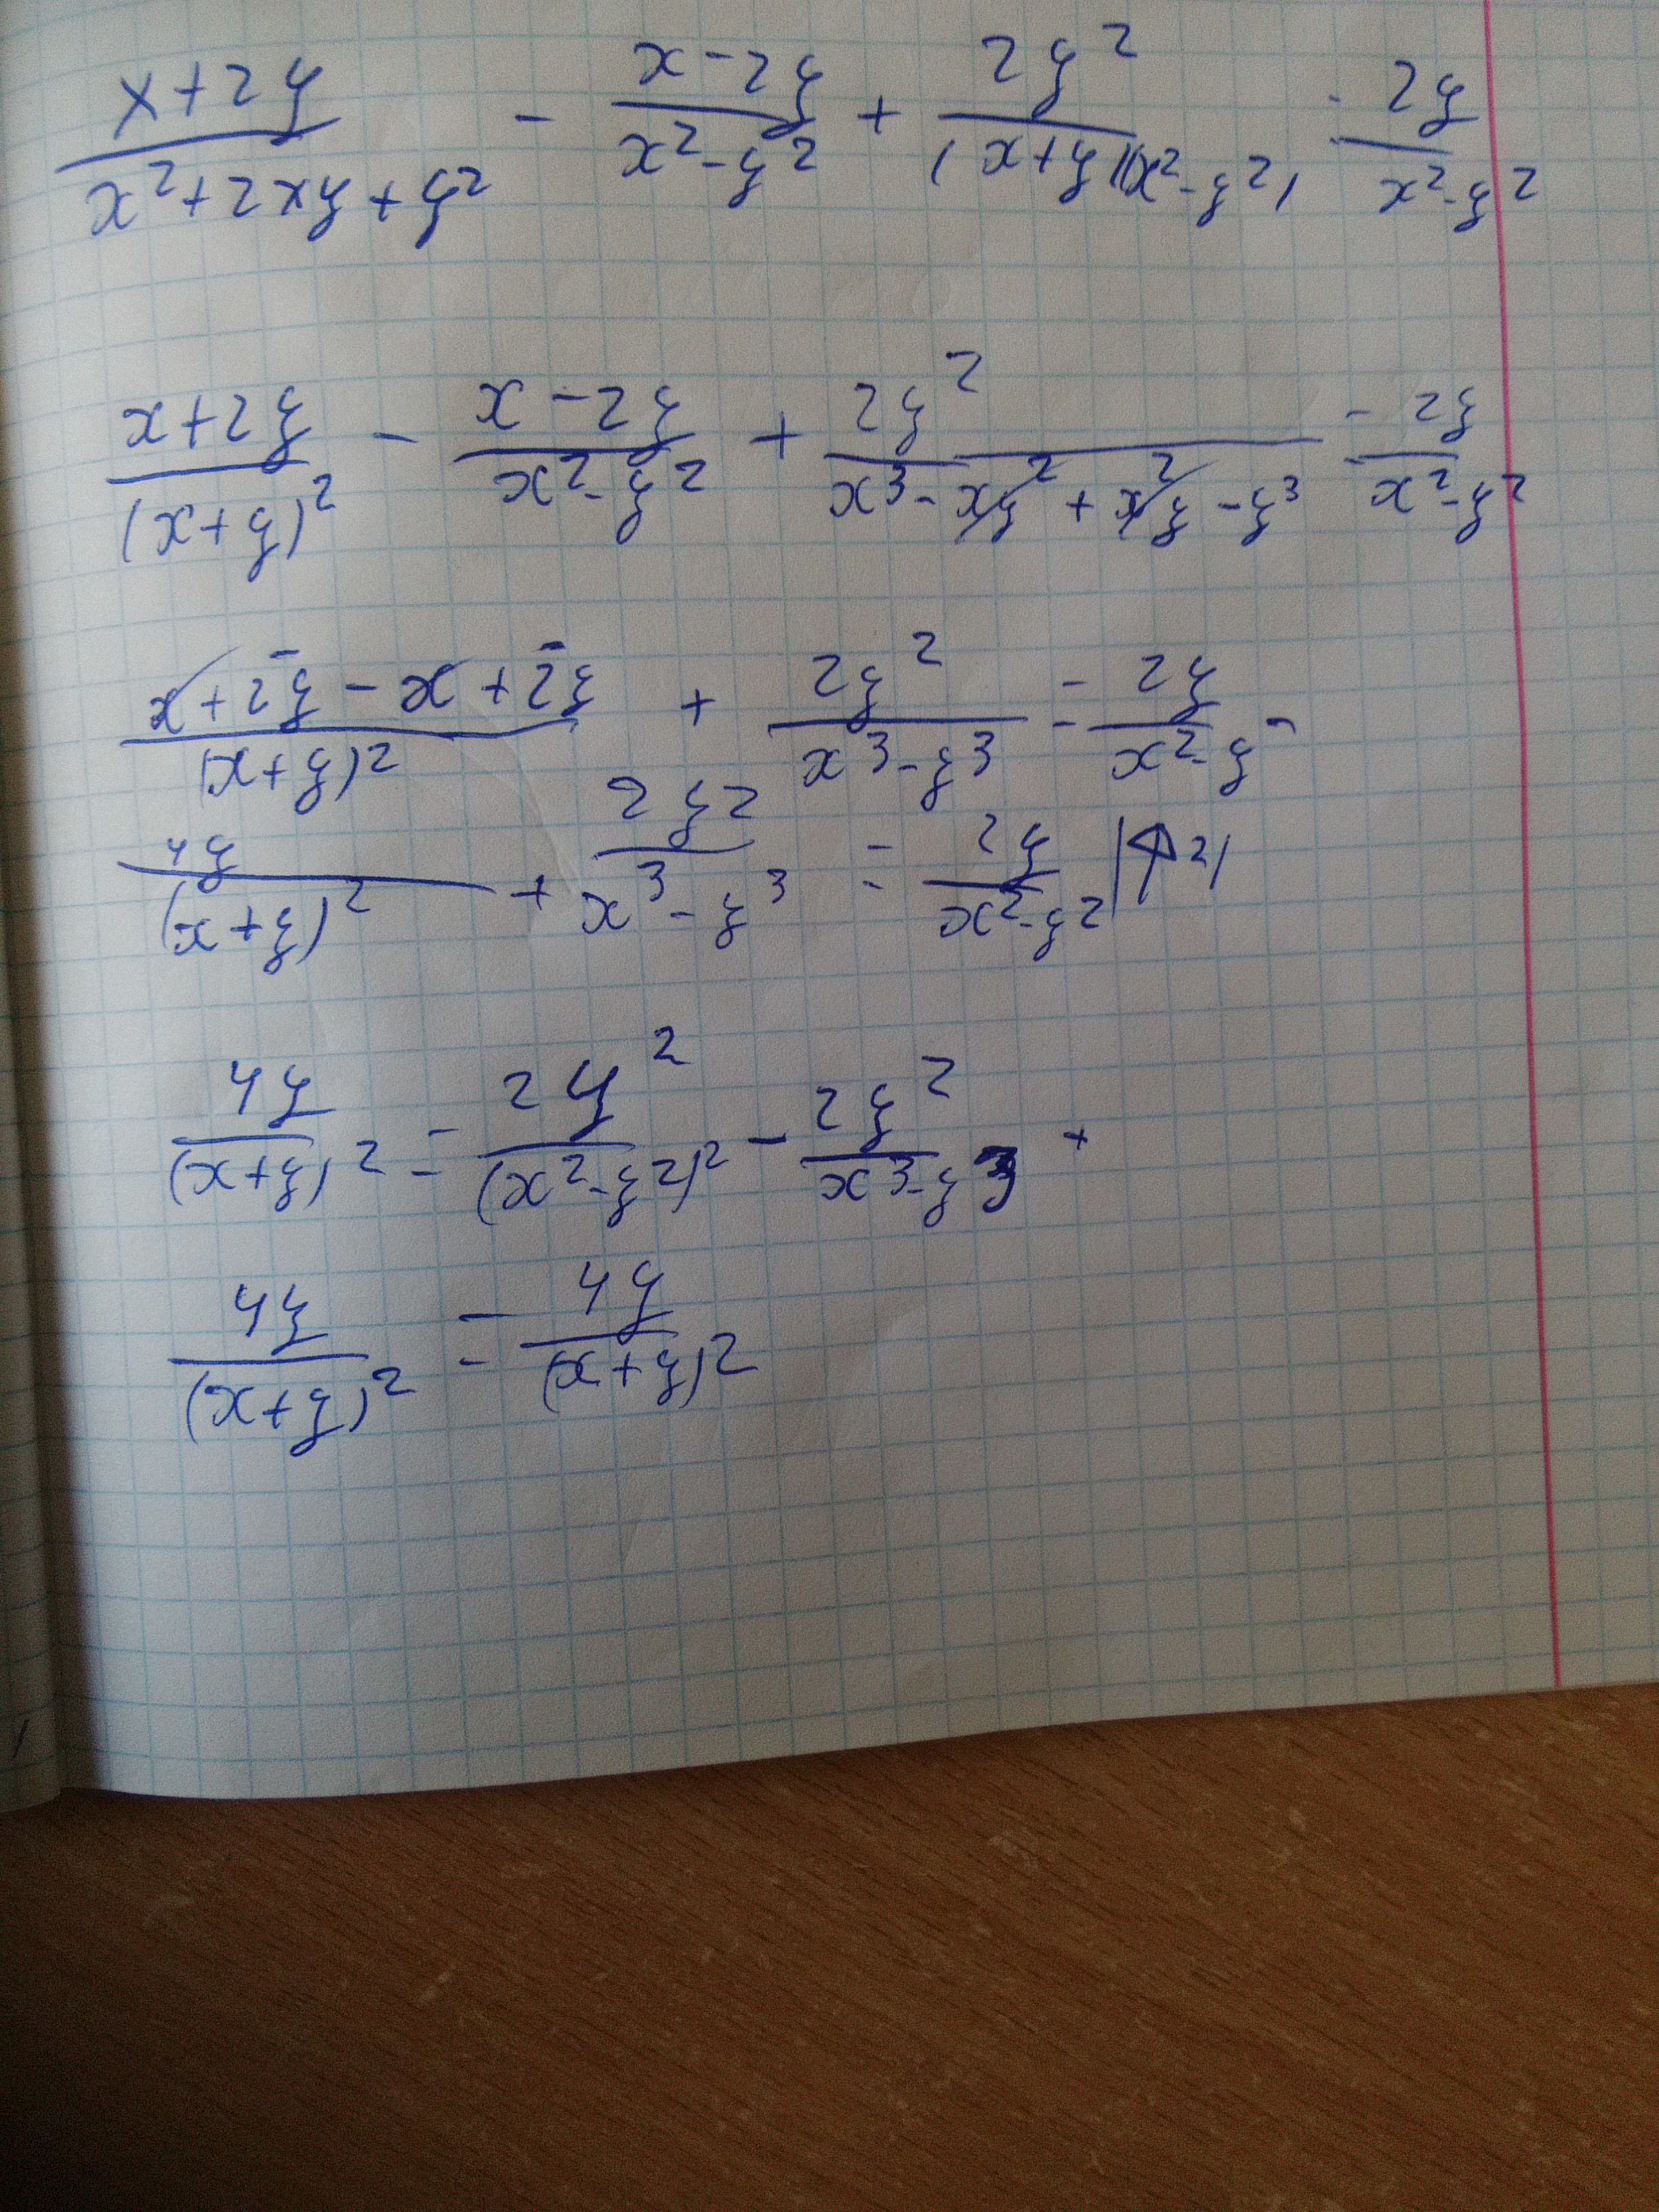 (x+2y)/(x²+2xy+y²) - (x-2y)/(x²-y²) + 2y²/((x+y)(x²-y²)) = 2y/(x²-y²)
(x+2y)/(x+y)² - (x-2y)/(x²-y²) + 2y²/(x³-xy²+x²y-y³) = 2y/(x²-y²)
(x+2y-x+2y)/(x+y)² + 2y²/(x³-y³) = 2y/(x²-y²)
4y/(x+y)² + 2y²/(x³-y³) = 2y/(x²-y²) |↑2|
4y/(x+y)² = 2y²/(x²-y²)² - 2y²/(x³-y³) +
4y/(x+y)² = 4y/(x+y)²